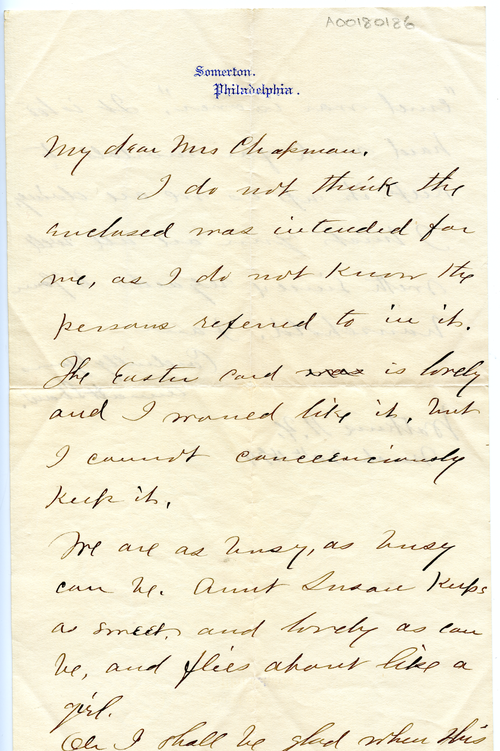 A00180186
Somerton.
Philadelphia.
My dear Mrs Chapman.
I do not think the
enclosed was intended for
me, as I do not know the
persons referred to in it.
The Easter card was is lovely
and I would like it, but
I cannot conscienciously
keep it.
We are as busy, as busy
can be. Aunt Susan keeps
as sweet, and lovely as can
be, and flies about like a
girl.
Oh I shall be glad when this